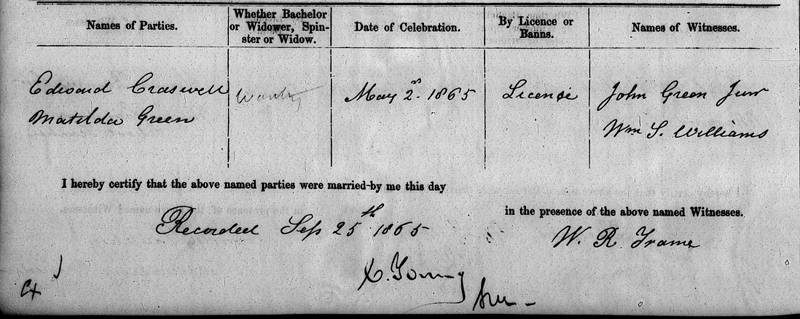 Names of Parties.
Whether Bachelor
or Widower, Spin-
ster or Widow.
Date of Celebration.
By Licence or
Banns.
Names of Witnesses.
Edward Craswell
Matilda Green
May 2nd 1865
License
John Green Junr
Wm S. Williams
I hereby certify that the above named parties were married by me this day
in the presence of the above named Witnesses.
Recorded Sep 25th 1865
W. R. Frame
C. Young